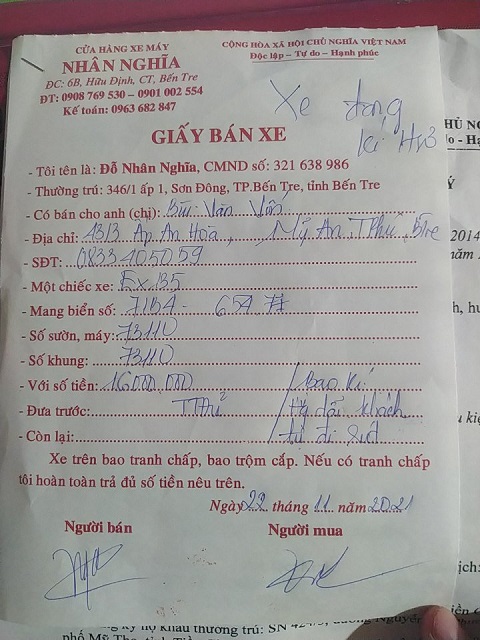 CỬA HÀNG XE MÁY
NHÂN NGHĨA
ĐC: 6B, Hữu Định, CT, Bến Tre
ĐT: 0908 769 530 – 0901 002 554
Kế toán: 0963 682 847
CỘNG HÒA XÃ HỘI CHỦ NGHĨA VIỆT NAM
Độc lập – Tự do – Hạnh phúc
Xe đang
kí
GIẤY BÁN XE
- Tôi tên là: Đỗ Nhân Nghĩa, CMND số: 321 638 986
- Thường trú: 346/1 ấp 1, Sơn Đông, TP.Bến Tre, tỉnh Bến Tre
- Có bán cho anh (chị): Bùi Văn
- Địa chỉ: Ấp An Hoà, Mỹ An, TPhú, Btre
- SĐT: 0833405059
- Một chiếc xe: Ex 135
- Mang biển số: 71B4 - 654
- Số sườn, máy: 73110
- Số khung: 73110
- Với số tiền: 16000.000 Bao kí
- Đưa trước: khách
- Còn lại: tự đi
Xe trên bao tranh chấp, bao trộm cắp. Nếu có tranh chấp
tôi hoàn toàn trả đủ số tiền nêu trên.
Ngày 22 tháng 11 năm 2021
Người bán
Người mua
2014
phố Mỹ Tho